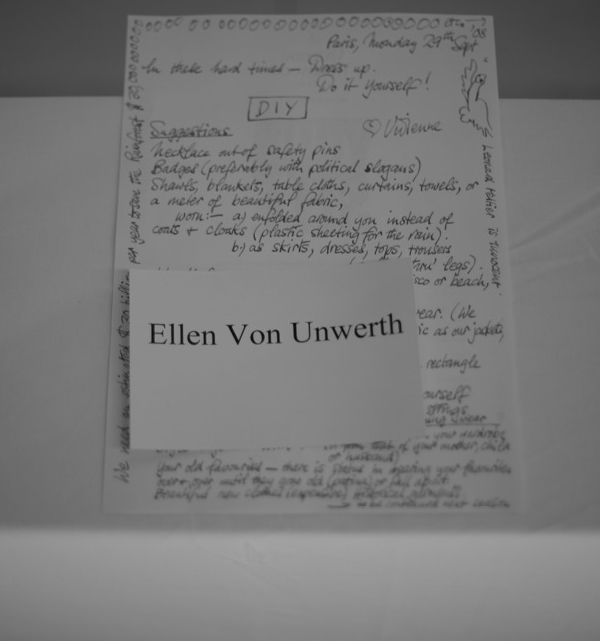 Paris, Monday 29th Sept '08
In these hard times — Dress up.
Do it yourself!
DIY
Vivienne
Suggestions
Necklace out of safety pins
Badges (preferably with political slogans)
Shawls, blankets, table cloths, curtains, towels, or
a meter of beautiful fabric,
worn:— a) enfolded around you instead of
coats + cloaks (plastic sheeting for the rain).
b) as skirts, dresses, tops, trousers
thru' legs).
or beach,
Ellen Von Unwerth
wear. (We
as our jackets,
rectangle
yourself
of your mother,
or husband)
Your old favourites — there is status in wearing your favourites
over + over until they grow old or fall apart.
Beautiful new clothes (expensive)
Leonard Peltier is innocent
We need an estimated
per year to save the Rainforest